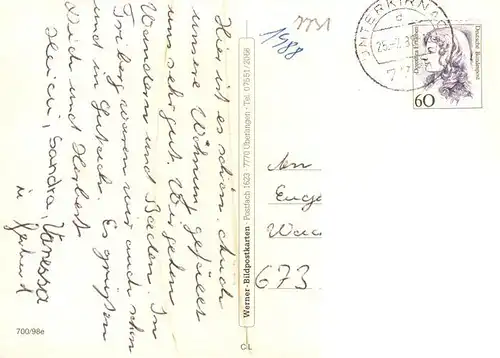 Hier ist es schön. Auch
unsere Wohnung gefällt
uns sehr gut. Wir gehen
Wandern und Baden. In
Triberg waren wir auch schon
und in Gutach. Es grüßen
Dich und Herbert
Heidi, Sandra, Vanessa
u. Gerhard
700/98e
Werner-Bildpostkarten · Postfach 1623 · 7770 Überlingen · Tel. 07551/2066
CL
1988
UNTERKIRNACH
60
Deutsche Bundespost
An
Euge
Wai
673